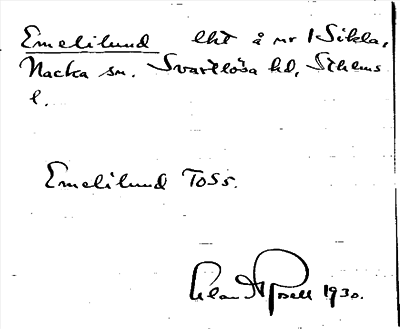 Emelilund lht å nr 1 Sikla,
Nacka sn. Svartlösa hd, Sthlms
l.
Emelilund TOSS.
1930.